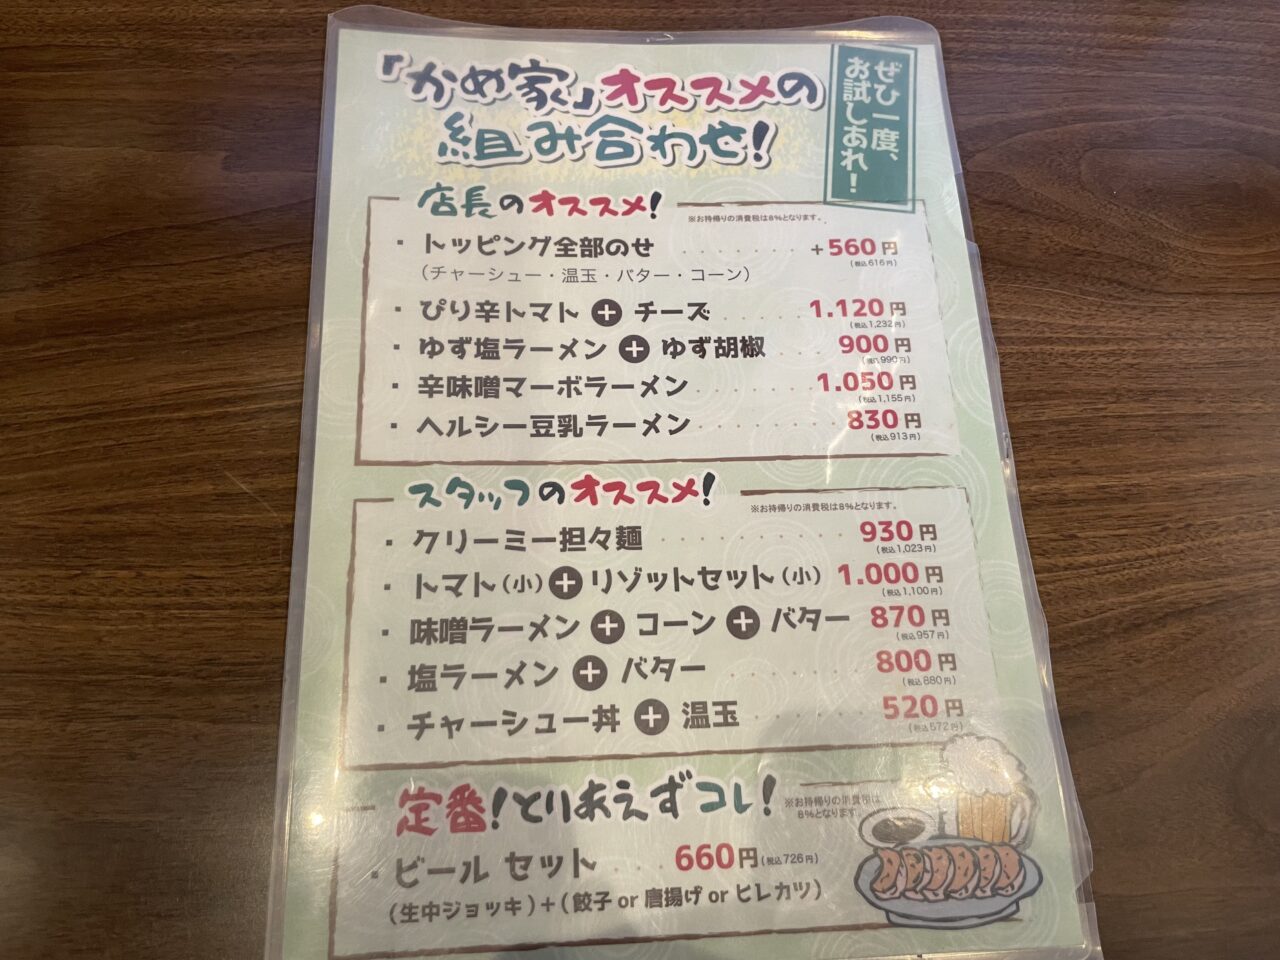 「かめ家」オススメの
組み合わせ!
ぜひ一度、
お試しあれ!
店長のオススメ!
※お持帰りの消費税は8%となります。
・トッピング全部のせ ........ +560円
(税込616円)
(チャーシュー・温玉・バター・コーン)
・ぴり辛トマト+チーズ ..... 1.120円
(税込1,232円)
・ゆず塩ラーメン+ゆず胡椒 ... 900円
(税込990円)
・辛味噌マーボラーメン ....... 1.050円
(税込1,155円)
・ヘルシー豆乳ラーメン ........ 830円
(税込913円)
スタッフのオススメ!
※お持帰りの消費税は8%となります。
・クリーミー担々麺 .......... 930円
(税込1,023円)
・トマト(小)+リゾットセット(小) 1.000円
(税込1,100円)
・味噌ラーメン+コーン+バター 870円
(税込957円)
・塩ラーメン+バター ....... 800円
(税込880円)
・チャーシュー丼+温玉 ...... 520円
(税込572円)
定番!とりあえずコレ!
※お持帰りの消費税は
8%となります。
・ビール セット ... 660円(税込726円)
(生中ジョッキ)+(餃子 or 唐揚げ or ヒレカツ)